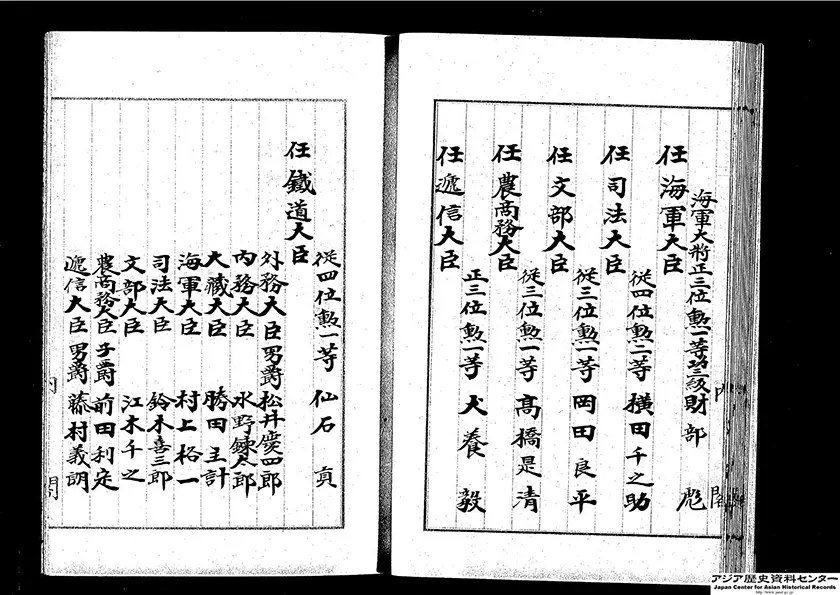 内閣
海軍大將正三位勲一等功三級財部 彪
任海軍大臣
從四位勲二等 横田千之助
任司法大臣
從三位勲一等 岡田良平
任文部大臣
從三位勲一等 高橋是清
任農商務大臣
正三位勲一等 犬養 毅
任遞信大臣
從四位勲一等 仙石 貢
任鐵道大臣
外務大臣男爵松井慶四郎
内務大臣 水野錬太郎
大藏大臣 勝田主計
海軍大臣 村上格一
司法大臣 鈴木喜三郎
文部大臣 江木千之
農商務大臣子爵 前田利定
遞信大臣男爵 藤村義朗
内閣
アジア歴史資料センター
Japan Center for Asian Historical Records
http://www.jacar.go.jp/